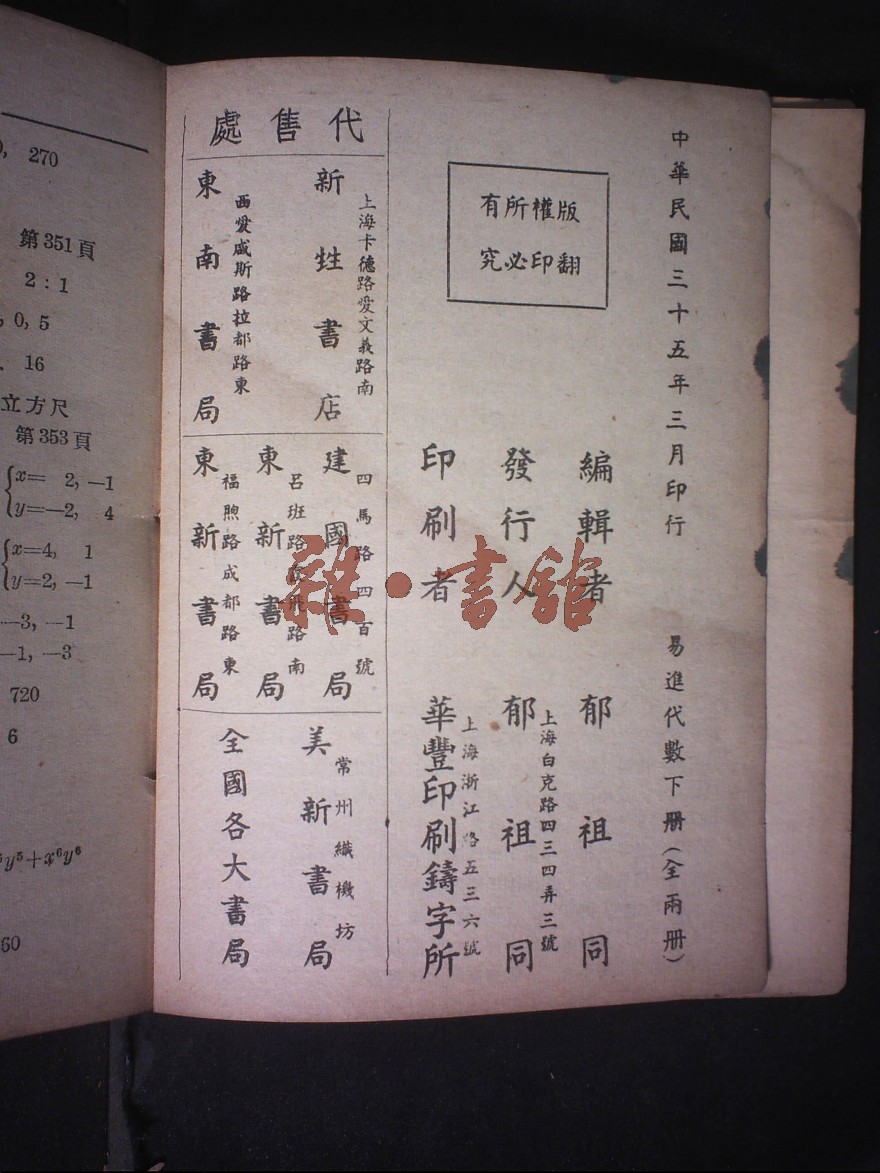 中華民國三十五年三月印行
易進代數下册（全兩册）
版權所有
翻印必究
編輯者 郁祖同
發行人 郁祖同
上海白克路四三四弄三號
印刷者 華豐印刷鑄字所
上海浙江路五三六號
代售處
上海卡德路愛文義路南
新甡書店
西愛咸斯路拉都路東
東南書局
四馬路四百號
建國書局
呂班路飛路南
東新書局
福煦路成都路東
東新書局
常州織機坊
美新書局
全國各大書局
雜·書館
270
第351頁
2 : 1
0, 5
16
立方尺
第353頁
x= 2, —1
y=—2, 4
x=4, 1
y=2, —1
—3, —1
—1, —3
720
6
y⁵+x⁶y⁶
60